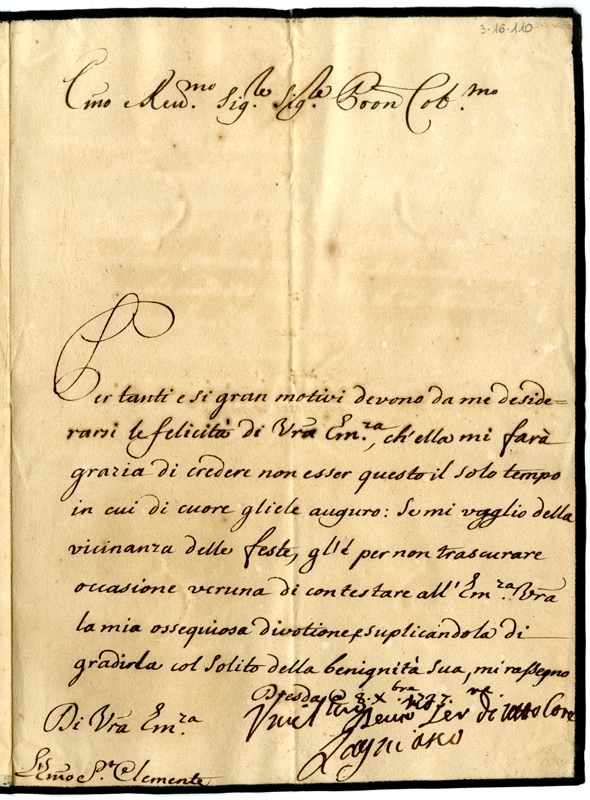 3-16-110
Emo e Reud.mo Sig.le Sig.le Pron Col.mo
Per tanti e si gran motivi devono da me deside=
rarsi le felicità di Vrā Em.ra, ch'ella mi farà
grazia di credere non esser questo il solo tempo
in cui di cuore gliele auguro: Se mi vaglio della
vicinanza delle feste, gl'é per non trascurare
occasione veruna di contestare all' Em.ra Vrā
la mia ossequiosa divotione, e suplicandola di
gradirla col Solito della benignità Sua, mi rassegno
Dresda 8. Xbre 1727.
Di Vrā Em.ra
Lagnasco
Emo S.t Clemente